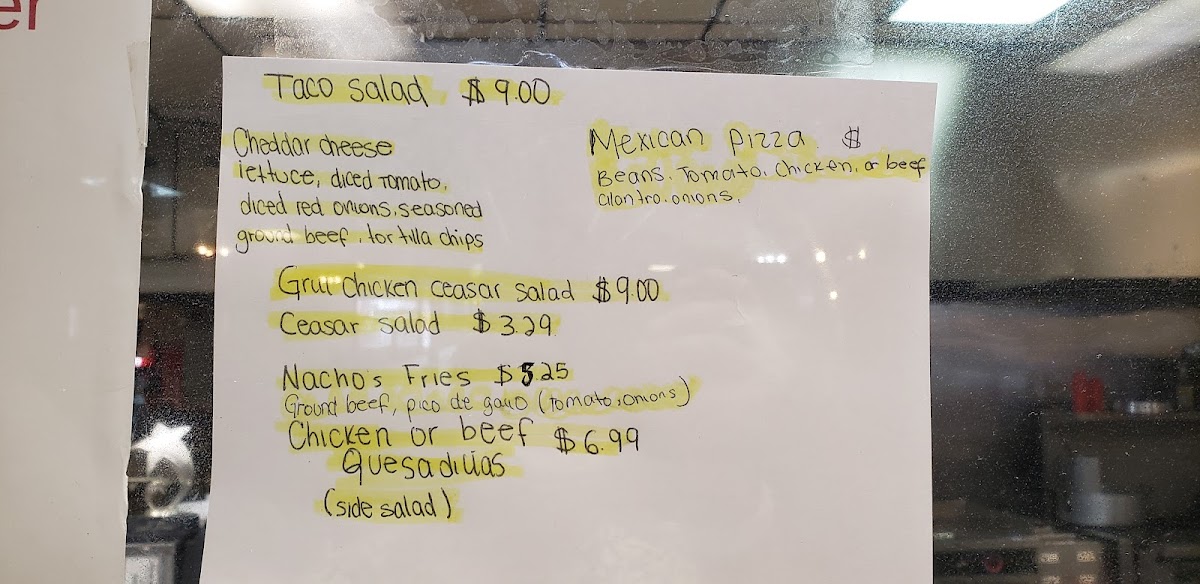 er
Taco Salad $ 9.00
Cheddar cheese
lettuce, diced Tomato.
diced red onions, seasoned
ground beef, tortilla chips
Mexican Pizza $
Beans. Tomato. Chicken, or beef
cilantro.onions.
Grill chicken ceasar salad $9.00
Ceasar salad $3.29
Nacho's Fries $5.25
Ground beef, pico de gallo (Tomato, onions)
Chicken or beef $6.99
Quesadillas
(side salad)